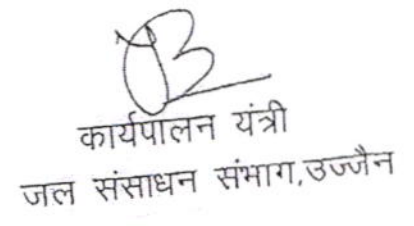 कार्यपालन यंत्री
जल संसाधन संभाग,उज्जैन